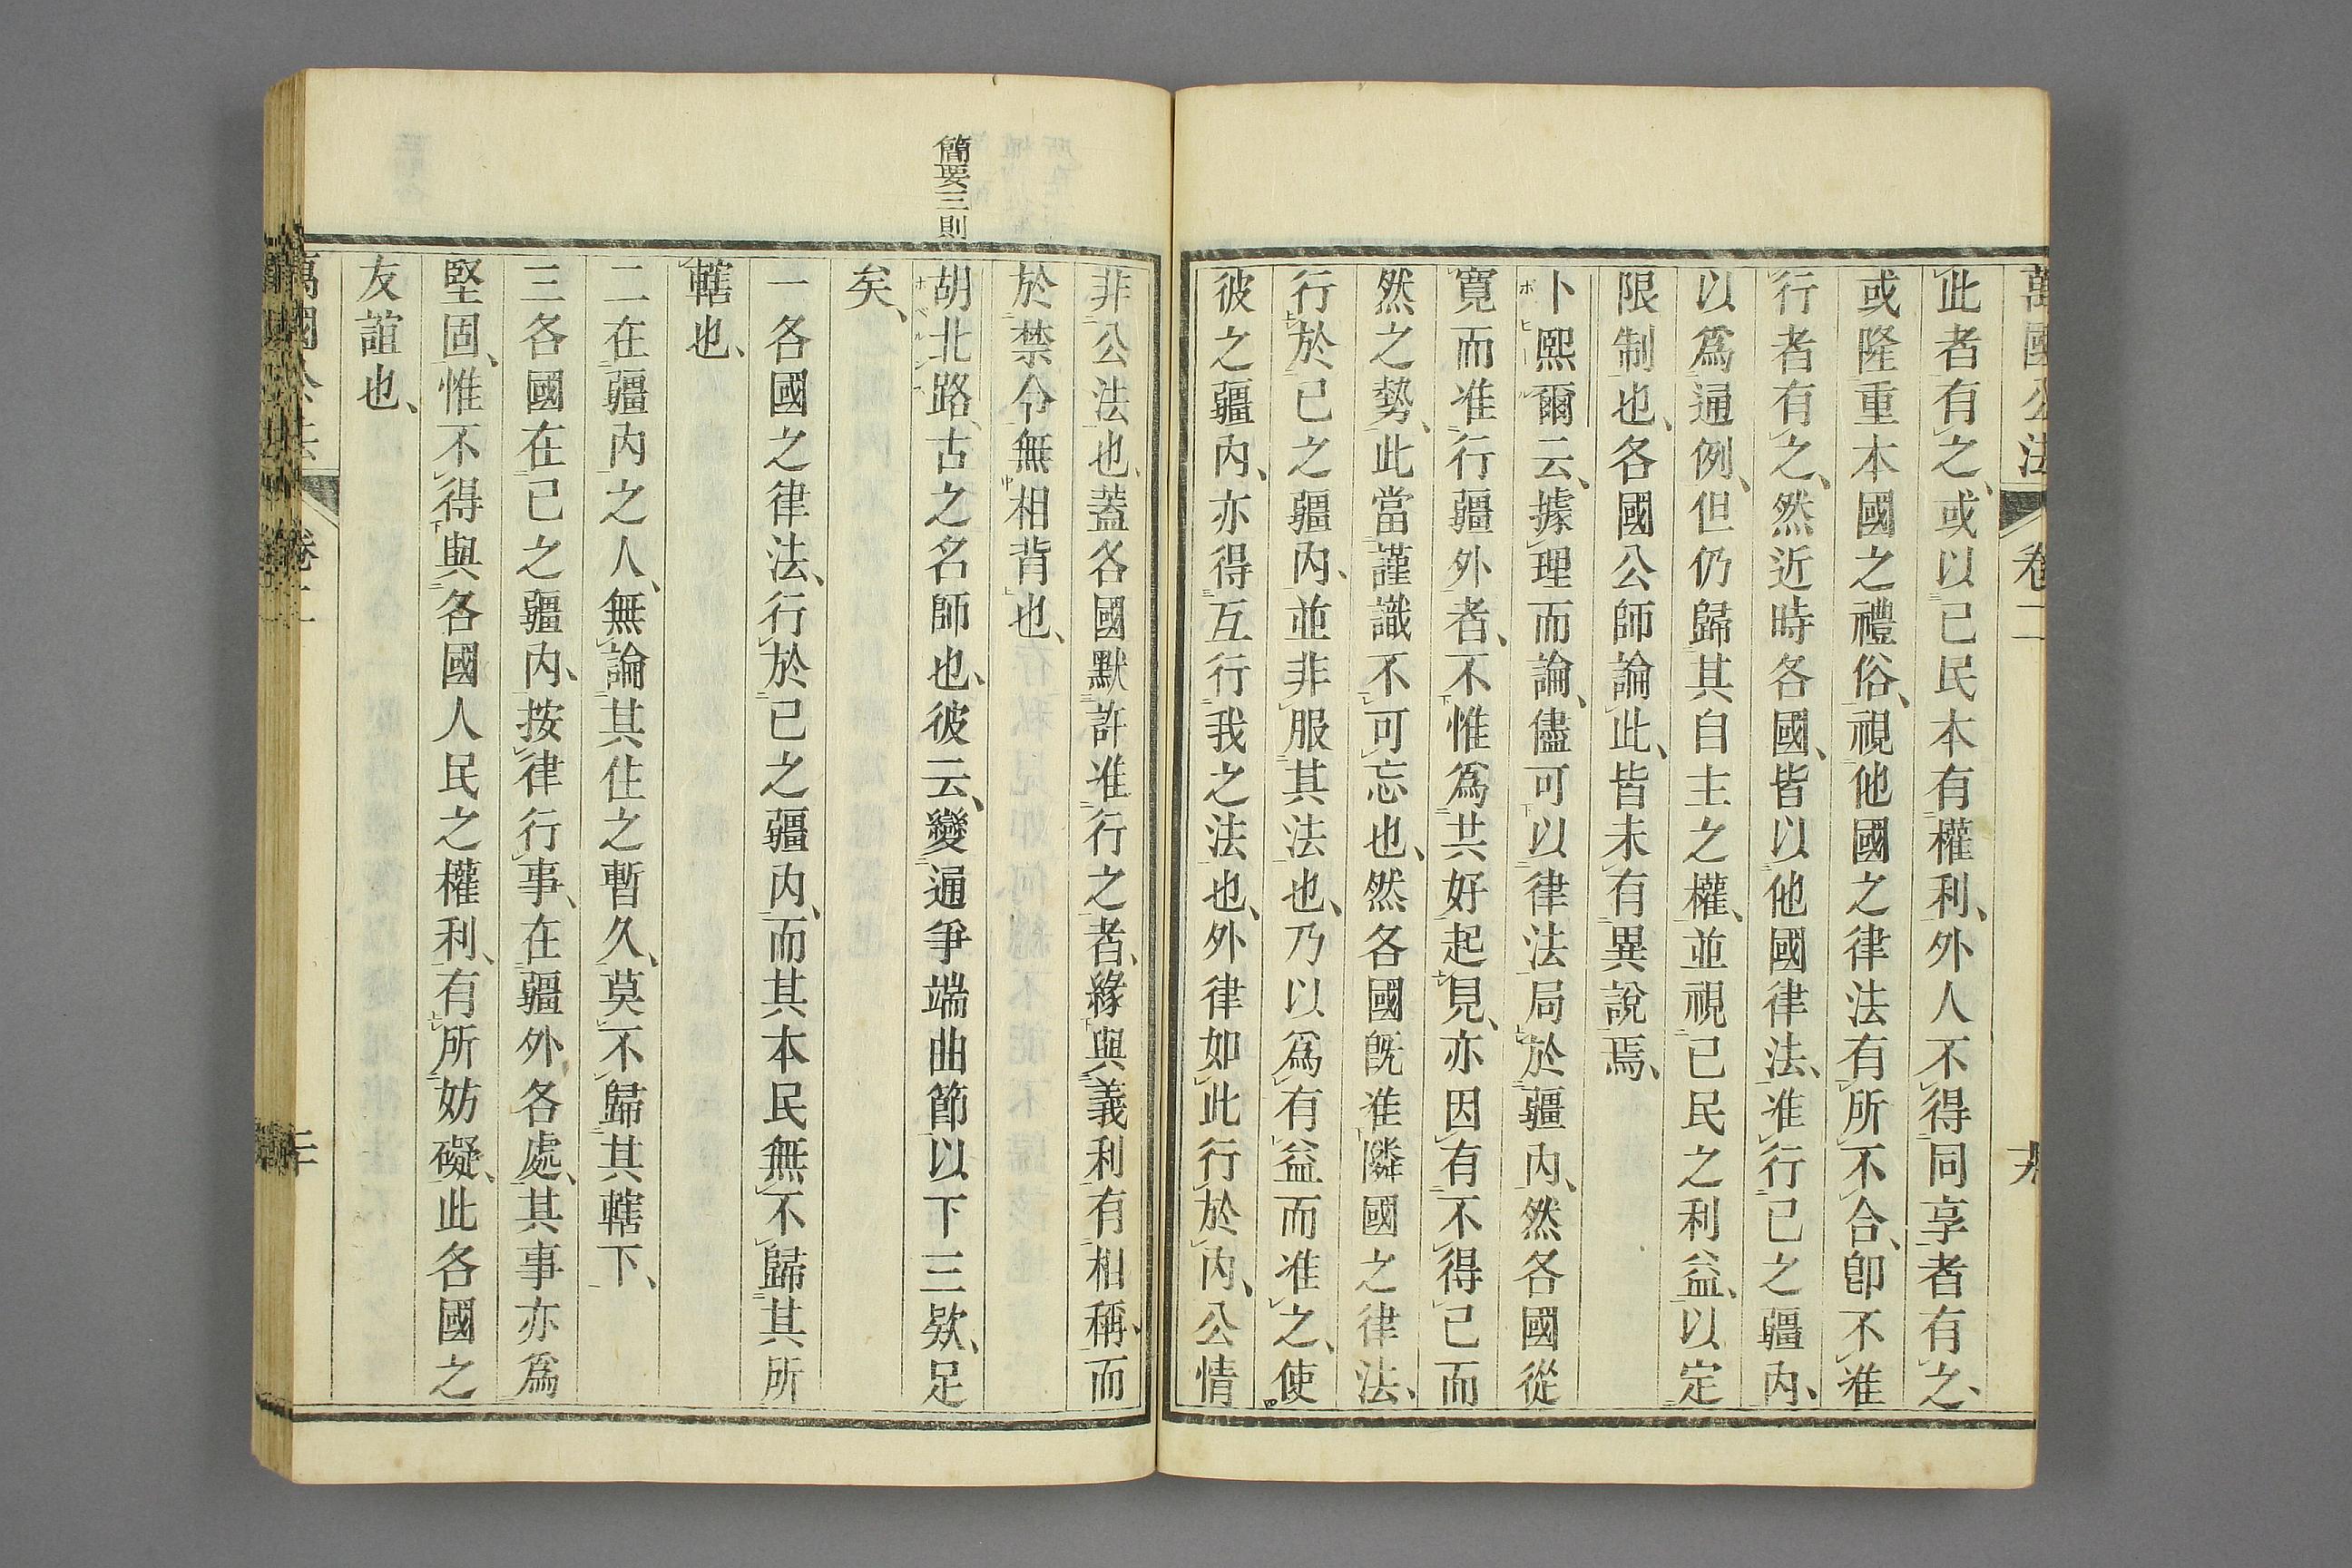 萬國公法 卷二
此者有之、或以己民本有權利、外人不得同享者有之、
或隆重本國之禮俗、視他國之律法有所不合、卽不准
行者有之、然近時各國、皆以他國律法、准行己之疆內、
以爲通例、但仍歸其自主之權、並視己民之利益、以定
限制也、各國公師論此、皆未有異說焉、
卜熙爾云、據理而論、儘可以律法局於疆內、然各國從
ボヒール
寬而准行疆外者、不惟爲共好起見、亦因有不得已而
然之勢、此當謹識不可忘也、然各國旣准隣國之律法、
行於己之疆內、並非服其法也、乃以爲有益而准之、使
彼之疆內、亦得互行我之法也、外律如此行於內、公情
非公法也、蓋各國默許准行之者、緣與義利有相稱、而
於禁令無相背也、
簡要三則
胡北路、古之名師也、彼云、變通爭端曲節以下三欵、足
矣、
一各國之律法、行於己之疆內、而其本民無不歸其所
轄也、
二在疆內之人、無論其住之暫久、莫不歸其轄下、
三各國在己之疆內、按律行事、在疆外各處、其事亦爲
堅固、惟不得與各國人民之權利、有所妨礙、此各國之
友誼也、
萬國公法 卷二